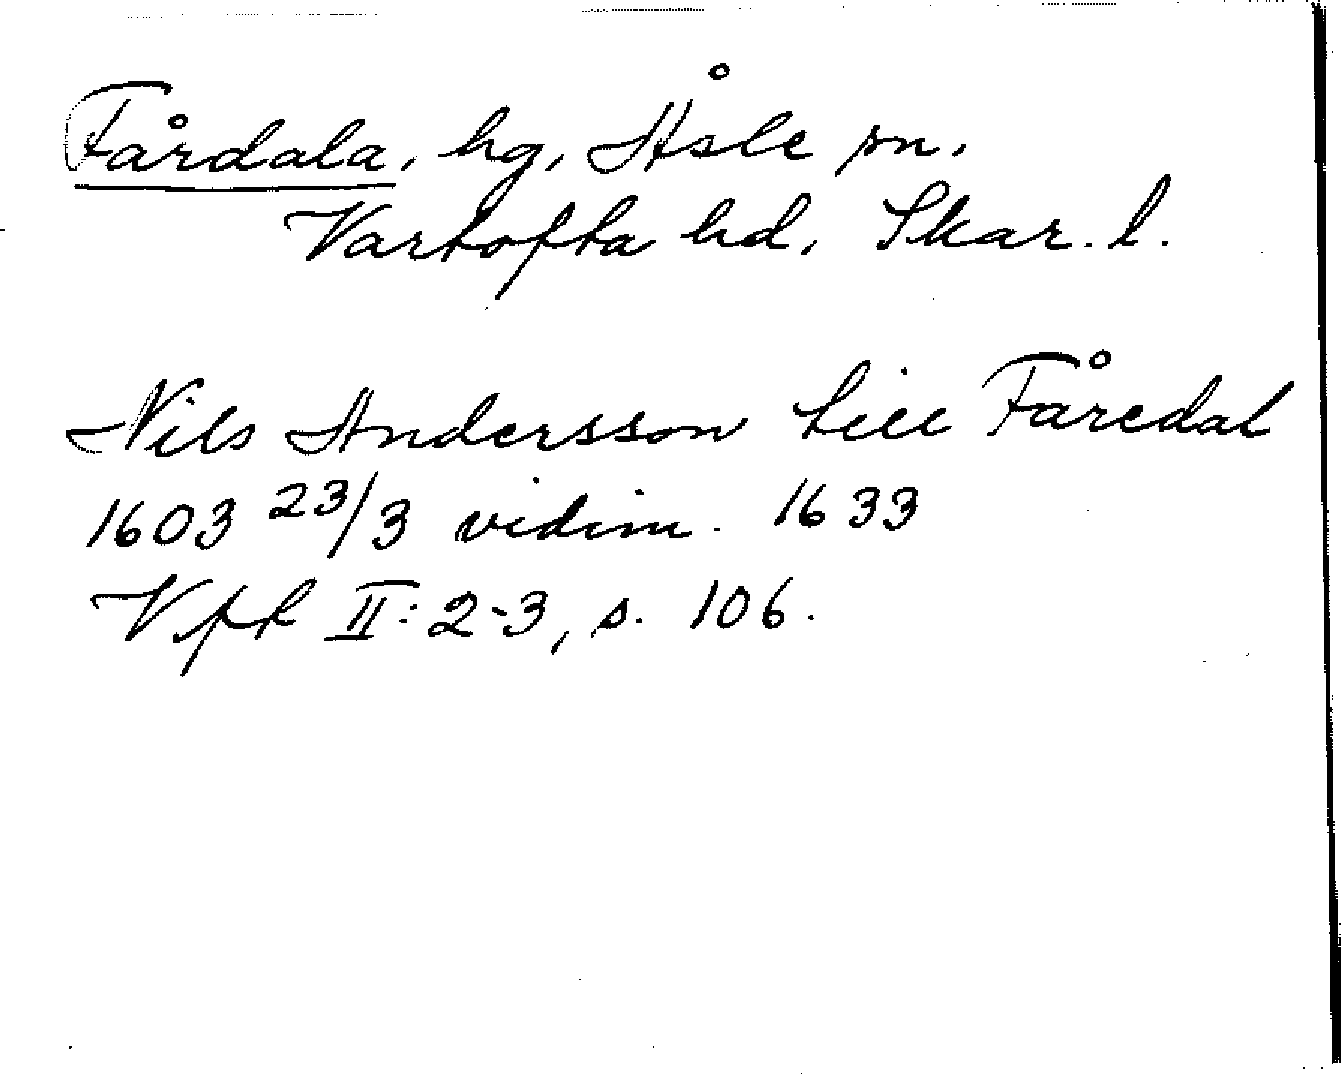 Fårdala, hg, Åsle sn.
Vartofta hd, Skar. l.
Nils Andersson till Fåredal
1603 23/3 vidim. 1633
Vpr II: 2-3, s. 106.